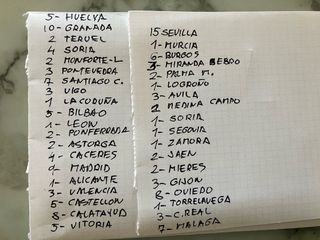 5- HUELVA
10- GRANADA
2 TERUEL
4 SORIA
2 MONFORTE-L
3 PONTEVEDRA
7 SANTIAGO C.
3 VIGO
1 LA CODUÑA
5- BILBAO
1- LEON
2- PONFERRADA
2- ASTORGA
4- CACERES
9 MADRID
1- ALICANTE
3- VALENCIA
5- CASTELLON
8- CALATAYUD
5- VITORIA
15 SEVILLA
1- MURCIA
6- BURGOS
3- MIRANDA EBRO
2- PALMA M.
1- LOGROÑO
3- AVILA
2 MEDINA CAMPO
1- SORIA
1- SEGOVIA
1- ZAMORA
2- JAEN
2- MIERES
3- GIJON
8- OVIEDO
1- TORRELAVEGA
3- C. REAL
7- MALAGA